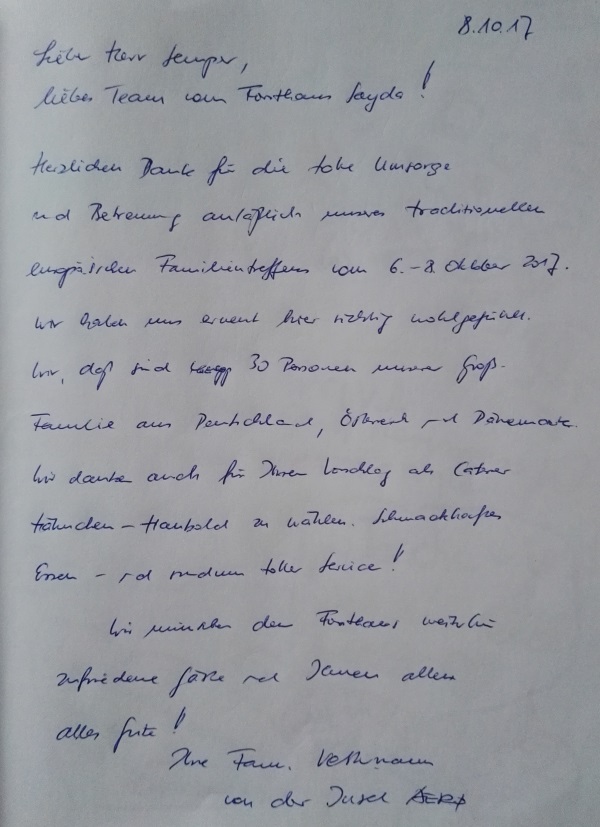 8.10.17
Liebe Herr Semper,
liebes Team vom Forsthaus Sayda!
Herzlichen Dank für die tolle Umsorge
und Betreuung anläßlich unseres traditionellen
europäischen Familientreffens vom 6.-8. Oktober 2017.
Wir haben uns erneut hier richtig wohlgefühlt.
Wir, daß sind 30 Personen unserer Groß-
Familie aus Deutschland, Österreich und Dänemark.
Wir danken auch für Ihren Vorschlag als Caterer
Hähnchen-Haubold zu wählen. Schmackhaftes
Essen - und rundum toller Service!
Wir wünschen dem Forsthaus weiterhin
zufriedene Gäste und Ihnen allen
alles Gute!
Ihre Fam.
von der Insel